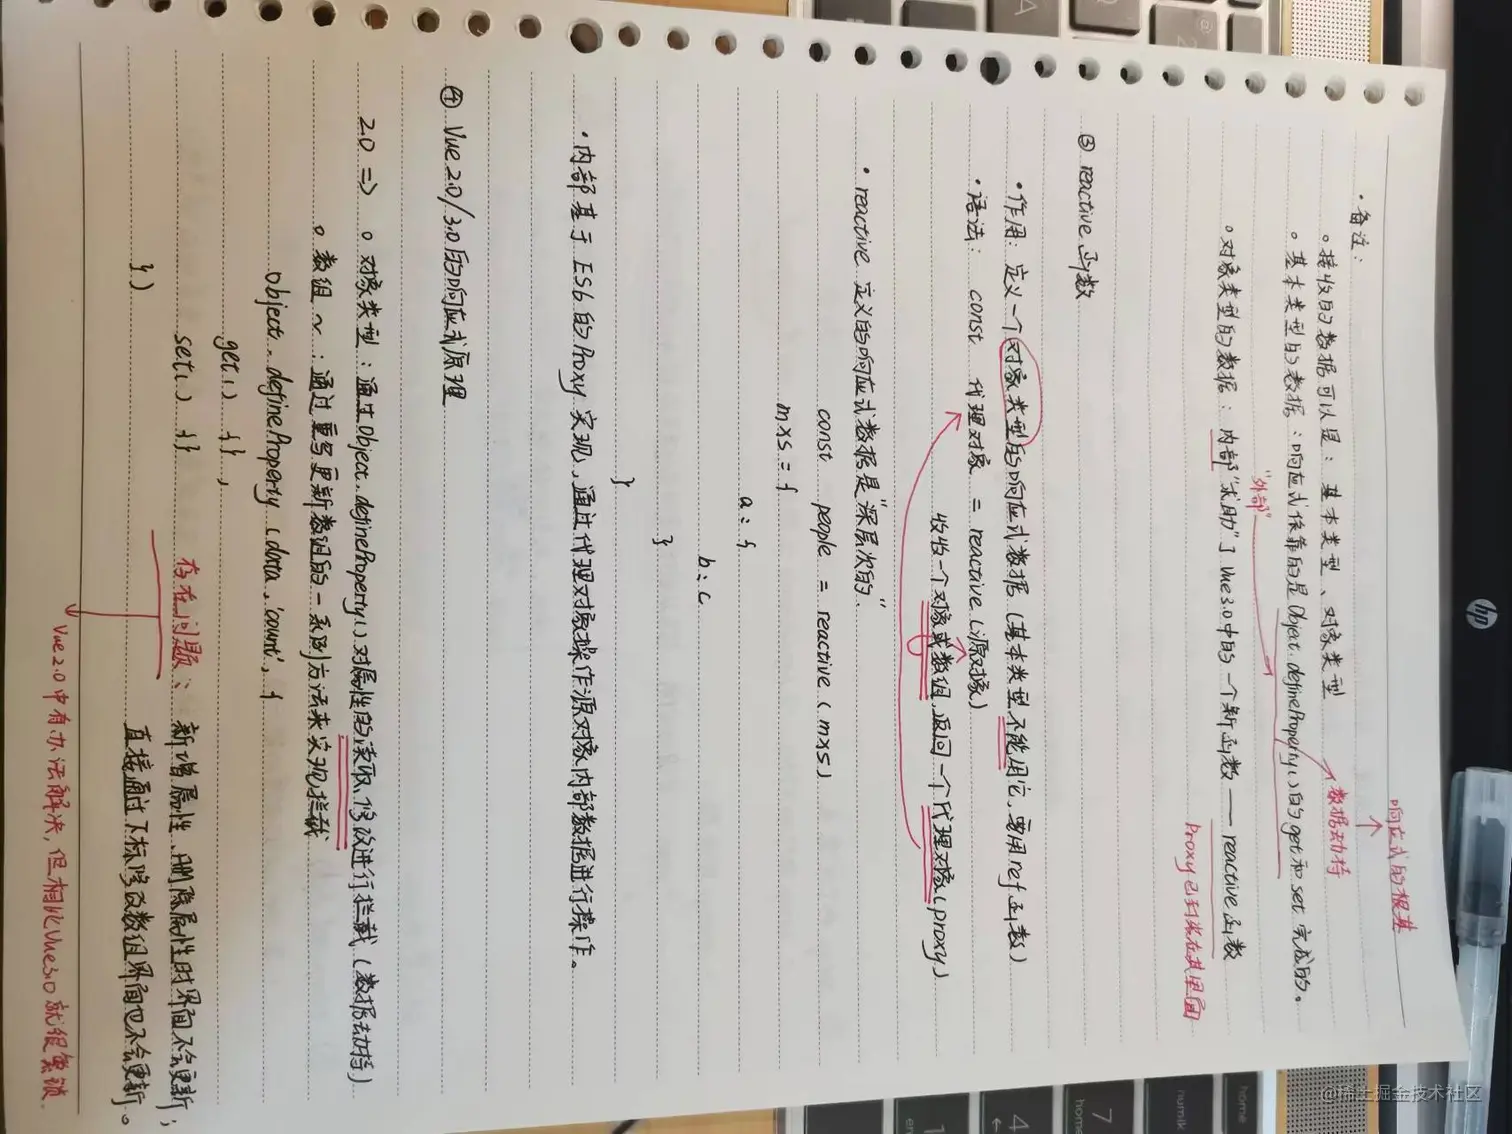 响应式的根基
数据劫持
·备注：
。接收的数据可以是：基本类型、对象类型
。基本类型的数据：响应式依靠的是Object.defineProperty()的get和set完成的。
"外部"
。对象类型的数据：内部"求助"了Vue3.0中的一个新函数——reactive函数
Proxy已封装在其里面
③ reactive函数
·作用：定义一个对象类型的响应式数据（基本类型不能用它，要用ref函数）
·语法：const 代理对象 = reactive（源对象）
收收一个对象或数组，返回一个代理对象（proxy）
·reactive定义的响应式数据是"深层次的"
const people = reactive(mxs)
mxs = {
a: {
b: c
}
}
·内部基于ES6的Proxy实现，通过代理对象操作源对象内部数据进行操作。
④ Vue2.0/3.0的响应式原理
2.0 => 。对象类型：通过Object.defineProperty()对属性的读取、修改进行拦截（数据劫持）
。数组~：通过重写更新数组的一系列方法来实现拦截
Object.defineProperty(data,'count',{
get() {},
set() {}
})
存在问题：新增属性、删除属性时界面不会更新；
直接通过下标修改数组界面也不会更新。
Vue2.0中有办法解决，但相比Vue3.0就很繁琐
@稀土掘金技术社区
hp
A
Q
2
4
7
home
numlk
home
en
1